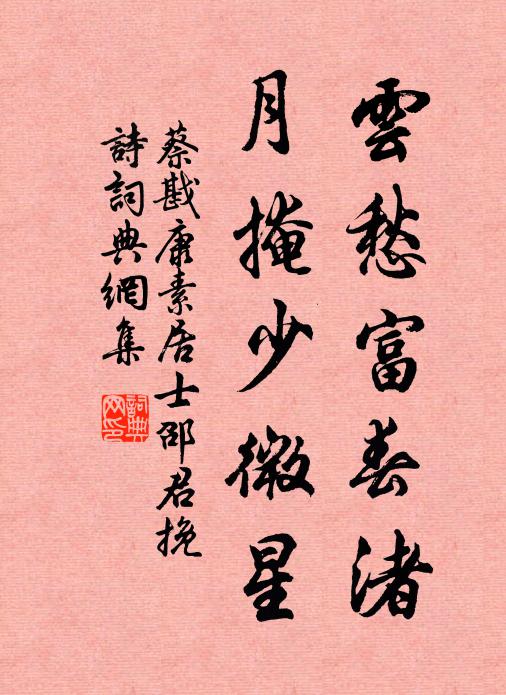 雲愁富春渚
月掩少微星
蔡戡康素居士邵君挽
詩詞典網集
詞典網印